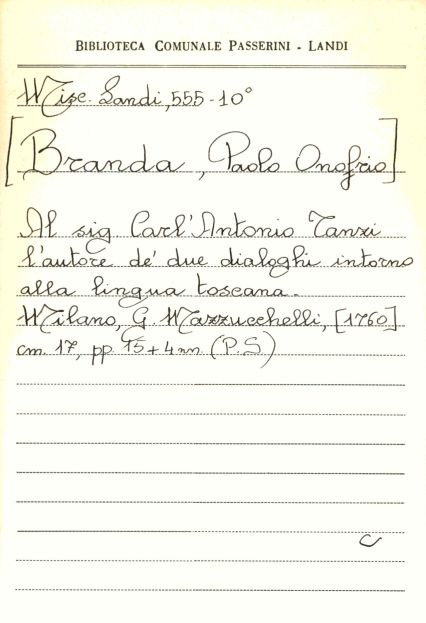 BIBLIOTECA COMUNALE PASSERINI - LANDI
Misc. Landi, 555 - 10°
[Branda, Paolo Onofrio]
Al sig Carl'Antonio Tanzi
l'autore de' due dialoghi intorno
alla lingua toscana.
Milano, G. Mazzucchelli, [1760]
cm. 17, pp. 15 + 4 nn. (P.S)
C